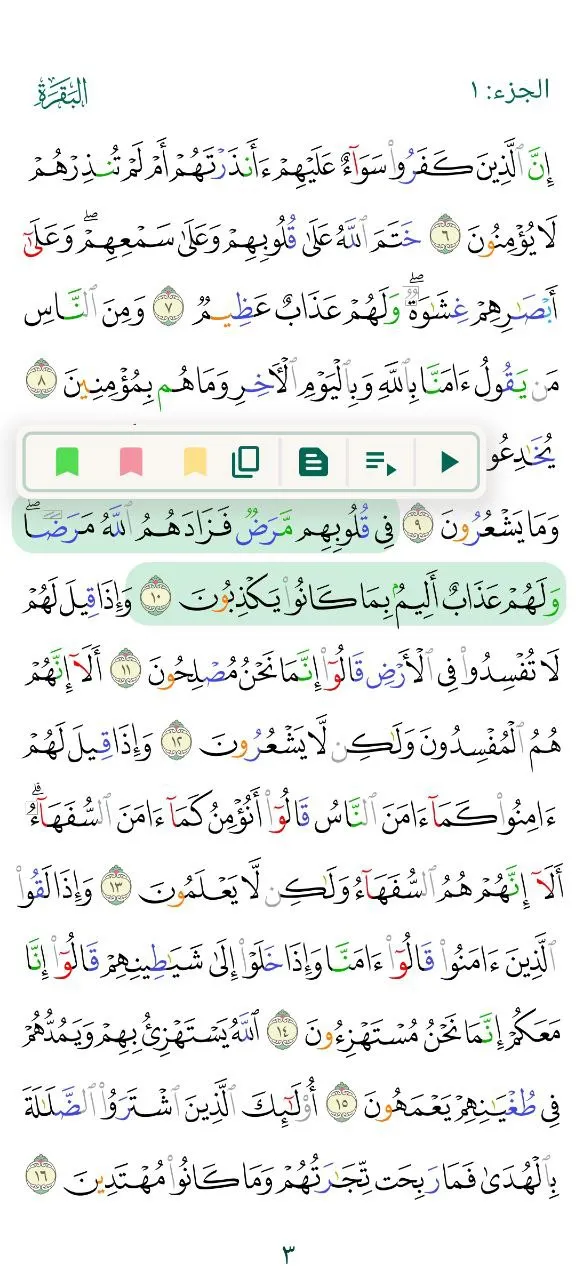 الجزء: ١
البَقَرَة
إِنَّ ٱلَّذِينَ كَفَرُوا۟ سَوَآءٌ عَلَيْهِمْ ءَأَنذَرْتَهُمْ أَمْ لَمْ تُنذِرْهُمْ
لَا يُؤْمِنُونَ ٦ خَتَمَ ٱللَّهُ عَلَىٰ قُلُوبِهِمْ وَعَلَىٰ سَمْعِهِمْ ۖ وَعَلَىٰٓ
أَبْصَـٰرِهِمْ غِشَـٰوَةٌ ۖ وَلَهُمْ عَذَابٌ عَظِيمٌ ٧ وَمِنَ ٱلنَّاسِ
مَن يَقُولُ ءَامَنَّا بِٱللَّهِ وَبِٱلْيَوْمِ ٱلْـَٔاخِرِ وَمَا هُم بِمُؤْمِنِينَ ٨
يُخَـٰدِعُو
وَمَا يَشْعُرُونَ ٩ فِى قُلُوبِهِم مَّرَضٌ فَزَادَهُمُ ٱللَّهُ مَرَضًا ۖ
وَلَهُمْ عَذَابٌ أَلِيمٌۢ بِمَا كَانُوا۟ يَكْذِبُونَ ١٠ وَإِذَا قِيلَ لَهُمْ
لَا تُفْسِدُوا۟ فِى ٱلْأَرْضِ قَالُوٓا۟ إِنَّمَا نَحْنُ مُصْلِحُونَ ١١ أَلَآ إِنَّهُمْ
هُمُ ٱلْمُفْسِدُونَ وَلَـٰكِن لَّا يَشْعُرُونَ ١٢ وَإِذَا قِيلَ لَهُمْ
ءَامِنُوا۟ كَمَآ ءَامَنَ ٱلنَّاسُ قَالُوٓا۟ أَنُؤْمِنُ كَمَآ ءَامَنَ ٱلسُّفَهَآءُ ۗ
أَلَآ إِنَّهُمْ هُمُ ٱلسُّفَهَآءُ وَلَـٰكِن لَّا يَعْلَمُونَ ١٣ وَإِذَا لَقُوا۟
ٱلَّذِينَ ءَامَنُوا۟ قَالُوٓا۟ ءَامَنَّا وَإِذَا خَلَوْا۟ إِلَىٰ شَيَـٰطِينِهِمْ قَالُوٓا۟ إِنَّا
مَعَكُمْ إِنَّمَا نَحْنُ مُسْتَهْزِءُونَ ١٤ ٱللَّهُ يَسْتَهْزِئُ بِهِمْ وَيَمُدُّهُمْ
فِى طُغْيَـٰنِهِمْ يَعْمَهُونَ ١٥ أُو۟لَـٰٓئِكَ ٱلَّذِينَ ٱشْتَرَوُا۟ ٱلضَّلَـٰلَةَ
بِٱلْهُدَىٰ فَمَا رَبِحَت تِّجَـٰرَتُهُمْ وَمَا كَانُوا۟ مُهْتَدِينَ ١٦
٣